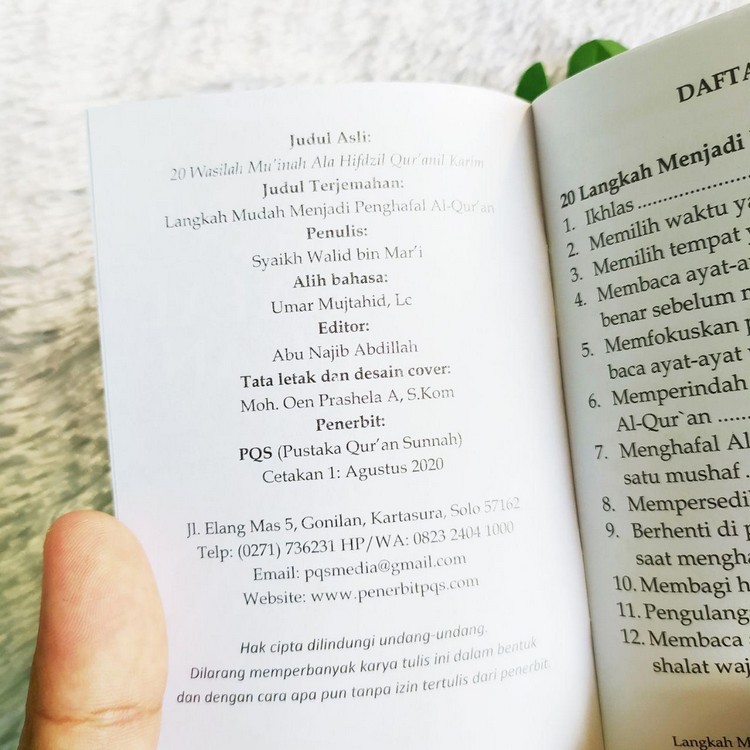 Judul Asli:
20 Wasilah Mu'inah Ala Hifdzil Qur'anil Karim
Judul Terjemahan:
Langkah Mudah Menjadi Penghafal Al-Qur'an
Penulis:
Syaikh Walid bin Mar'i
Alih bahasa:
Umar Mujtahid, Lc
Editor:
Abu Najib Abdillah
Tata letak dan desain cover:
Moh. Oen Prashela A, S.Kom
Penerbit:
PQS (Pustaka Qur'an Sunnah)
Cetakan 1: Agustus 2020
Jl. Elang Mas 5, Gonilan, Kartasura, Solo 57162
Telp: (0271) 736231 HP/WA: 0823 2404 1000
Email: pqsmedia@gmail.com
Website: www.penerbitpqs.com
Hak cipta dilindungi undang-undang.
Dilarang memperbanyak karya tulis ini dalam bentuk
dan dengan cara apa pun tanpa izin tertulis dari penerbit.
20 Langkah Menjadi
1. Ikhlas ....................
2. Memilih waktu
3. Memilih tempat
4. Membaca
benar sebelum
5. Memfokuskan
baca ayat-ayat
6. Memperindah
Al-Qur`an ......
7. Menghafal
satu mushaf .
8.
9. Berhenti di
saat
10. Membagi
11.
12. Membaca
shalat
Langkah